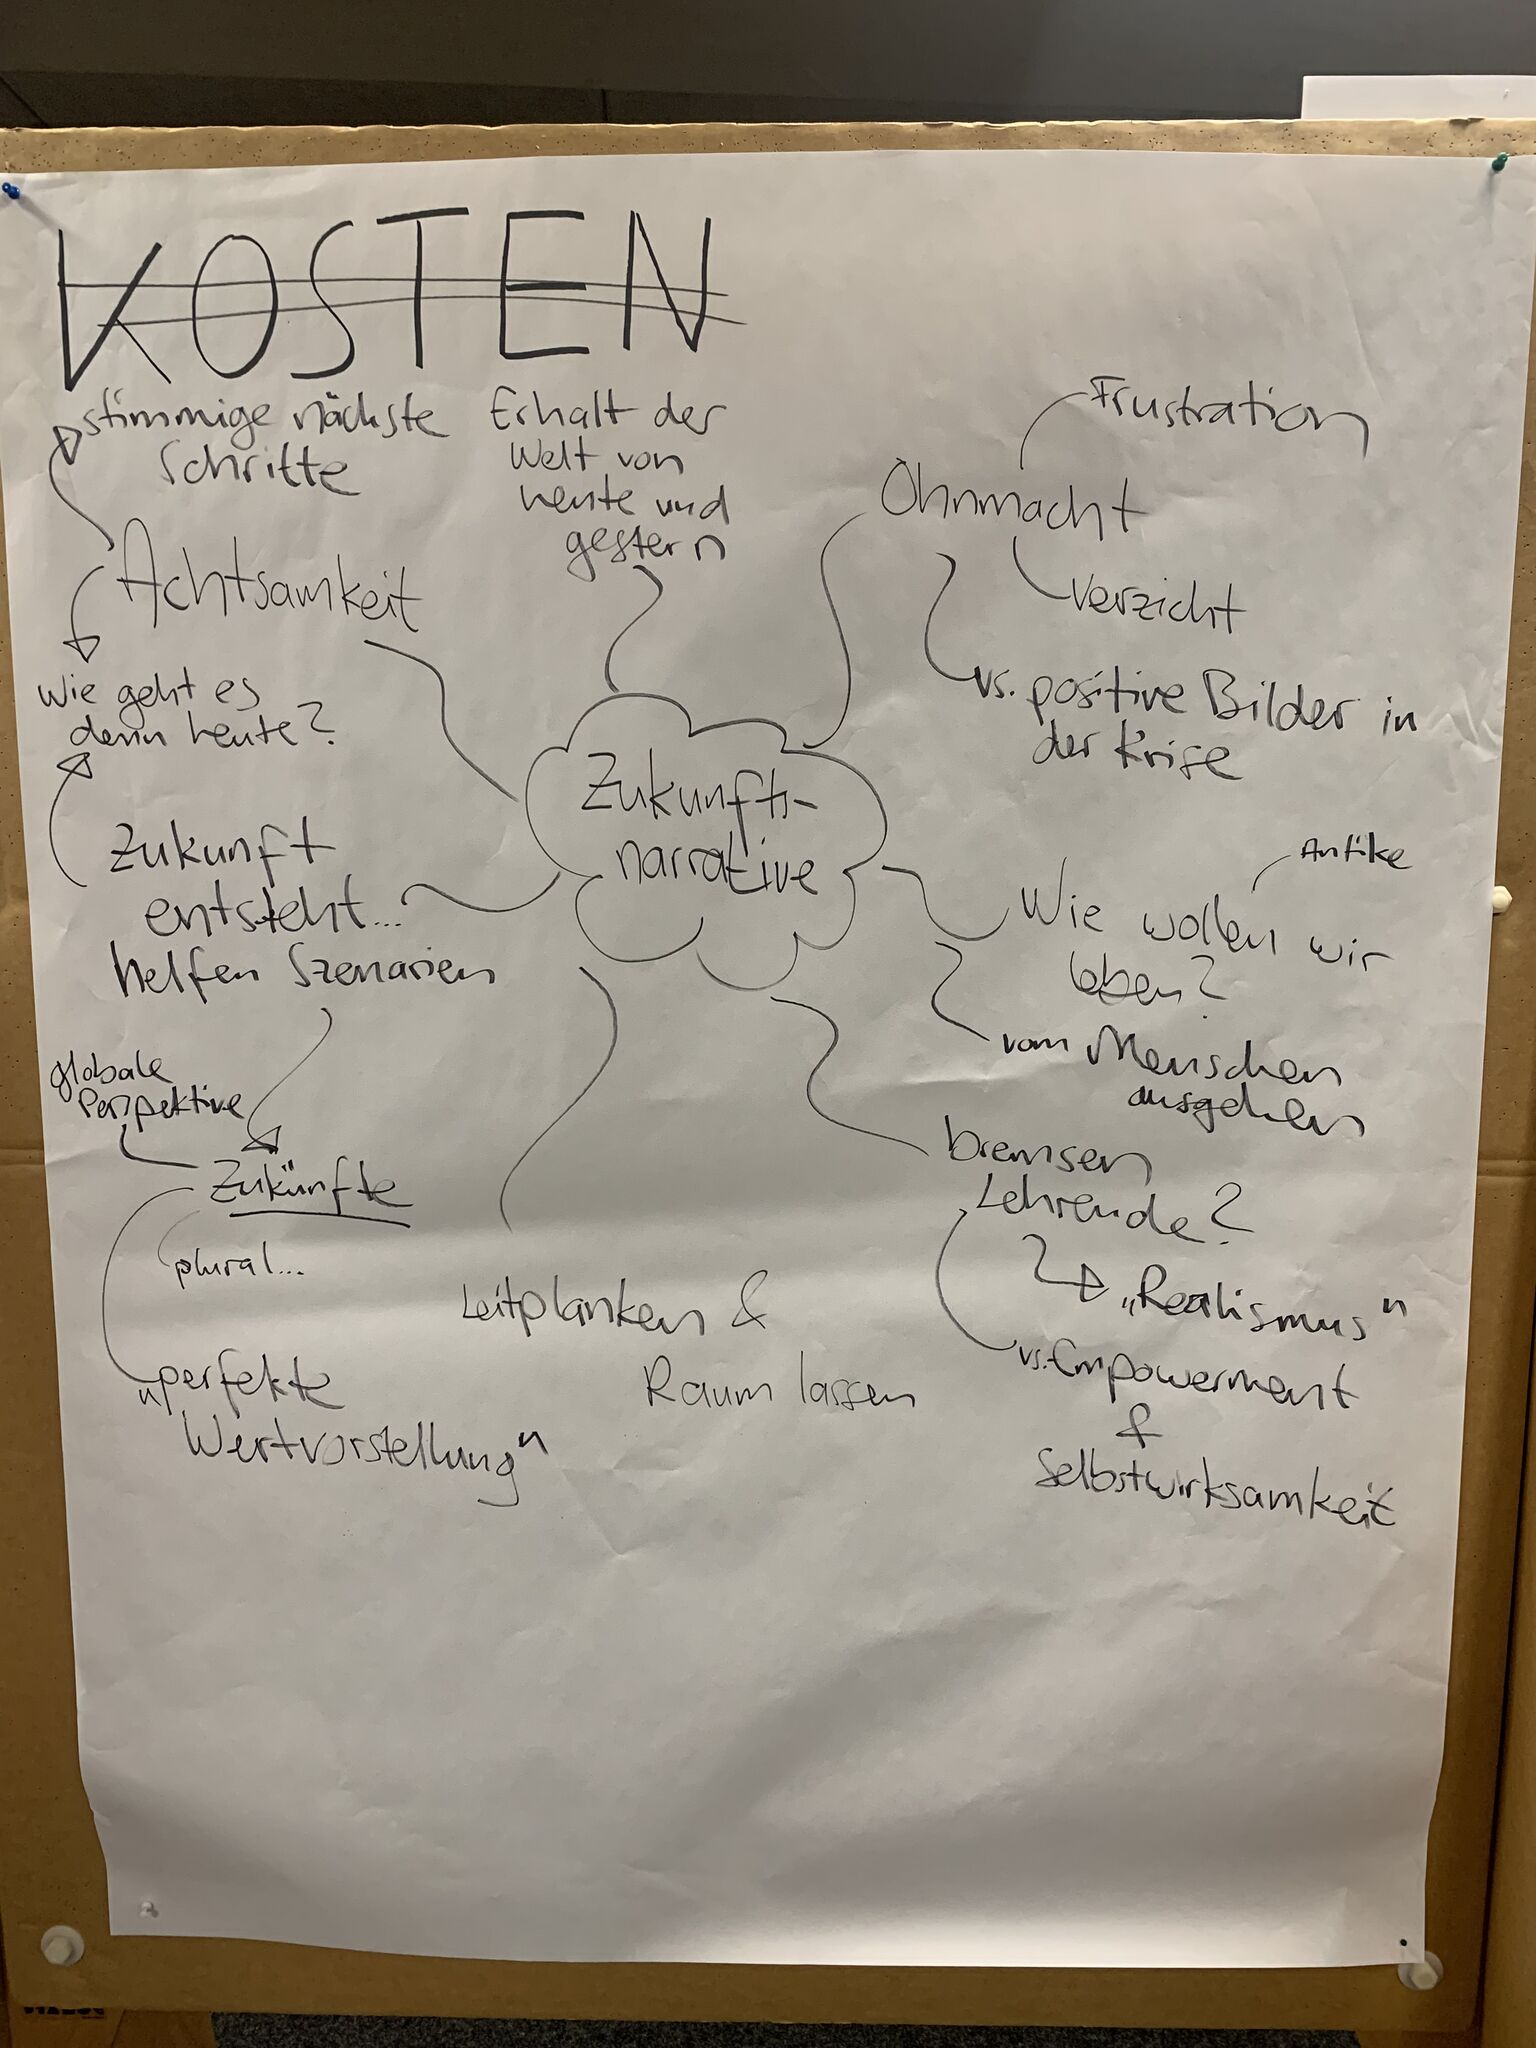 KOSTEN
stimmige nächste
Schritte
Erhalt der
Welt von
heute und
gestern
Frustration
Ohnmacht
Verzicht
vs. positive Bilder in
der Krise
Achtsamkeit
Wie geht es
denn heute?
Zukunfts-
narrative
Zukunft
entsteht...
helfen Szenarien
Antike
Wie wollen wir
leben?
vom Menschen
ausgehen
globale
Perspektive
Zukünfte
plural...
"perfekte
Wertvorstellung"
Leitplanken &
Raum lassen
bremsen
Lehrende?
„Realismus"
vs. Empowerment
&
Selbstwirksamkeit